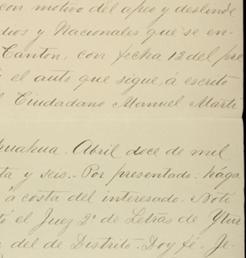 con motivo del apeo y deslinde
dios y Nacionales que se en-
Canton, con fecha 12 del pre
é el auto que sigue, á escrito
l Ciudadano Manuel Marte
huahua. Abril doce de mil
ta y seis. Por presentado: hága
á costa del interesado. Noti
tó el Juez 2º de Letras de
a del de Distrito. Doy fé. Je-